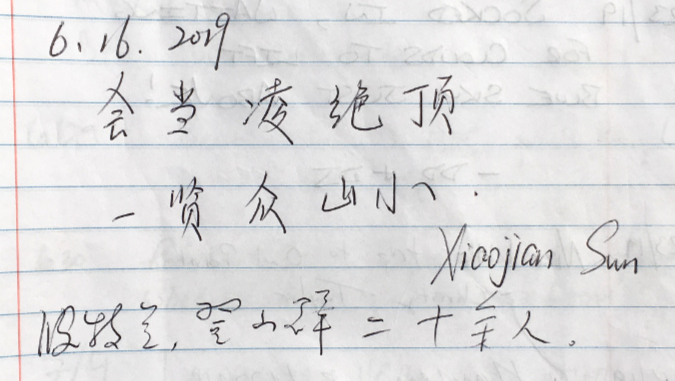 6.16.2019
会当凌绝顶
一贤众山小.
Xiaojian Sun
波特兰,登山群二十余人。